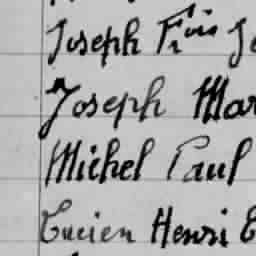 Joseph Fçois Jo
Joseph Mar
Michel Paul
Lucien Henri E